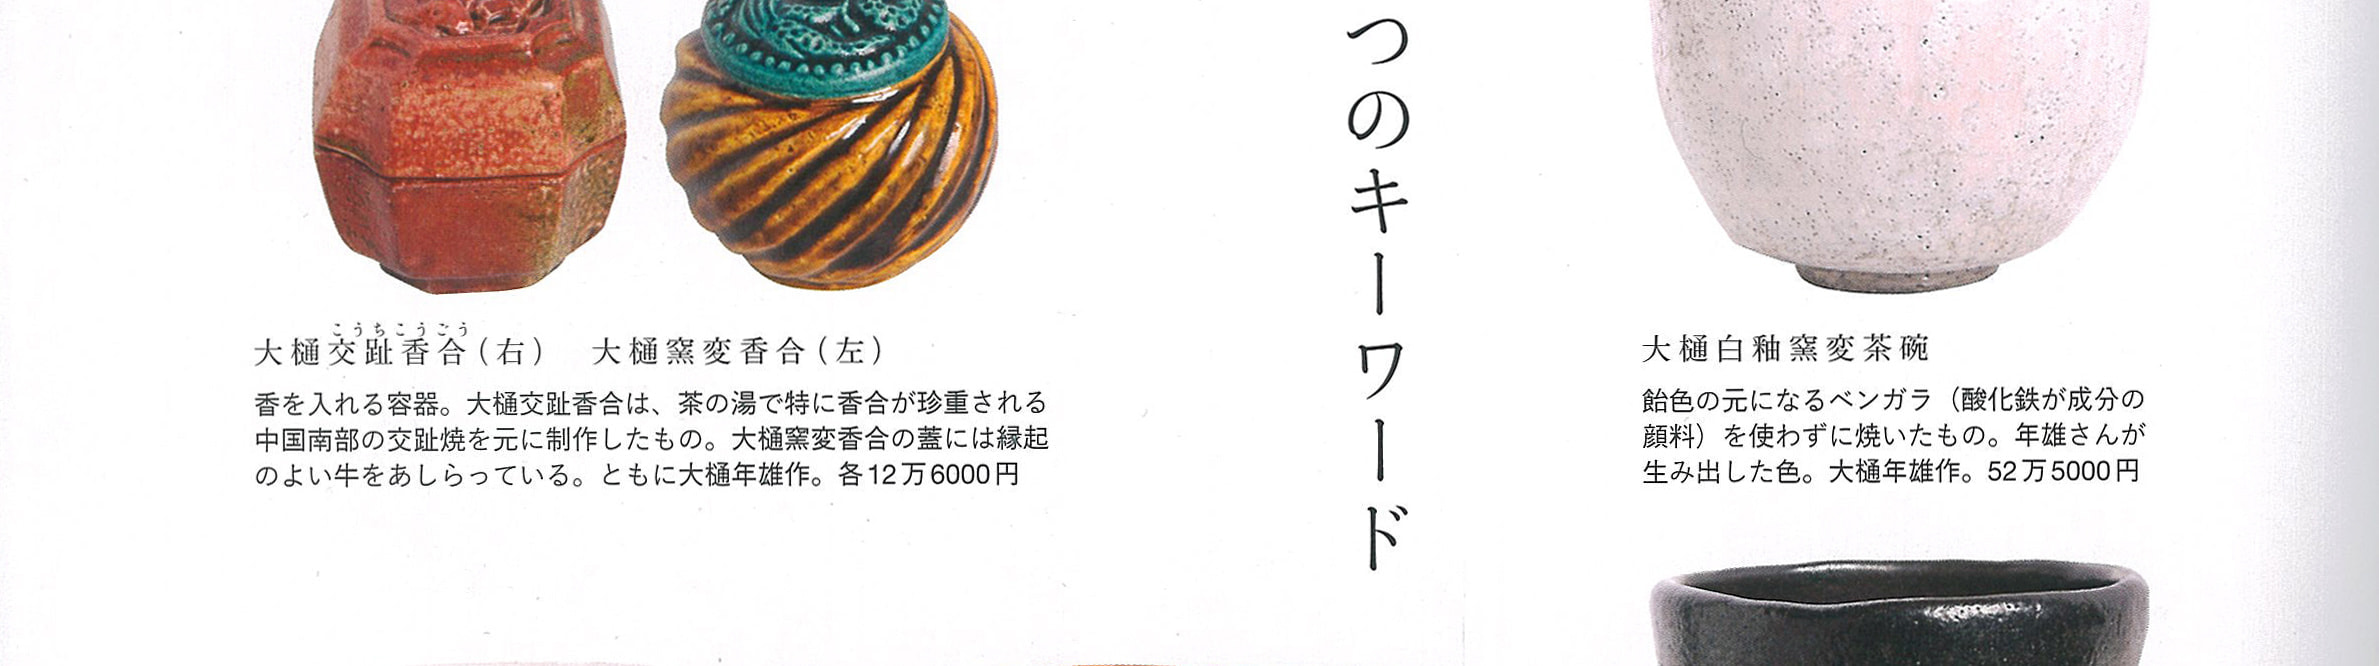 つのキーワード
大樋白釉窯変茶碗
飴色の元になるベンガラ（酸化鉄が成分の
顔料）を使わずに焼いたもの。年雄さんが
生み出した色。大樋年雄作。52万5000円
こうちこうごう
大樋交趾香合（右）　大樋窯変香合（左）
香を入れる容器。大樋交趾香合は、茶の湯で特に香合が珍重される
中国南部の交趾焼を元に制作したもの。大樋窯変香合の蓋には縁起
のよい牛をあしらっている。ともに大樋年雄作。各12万6000円